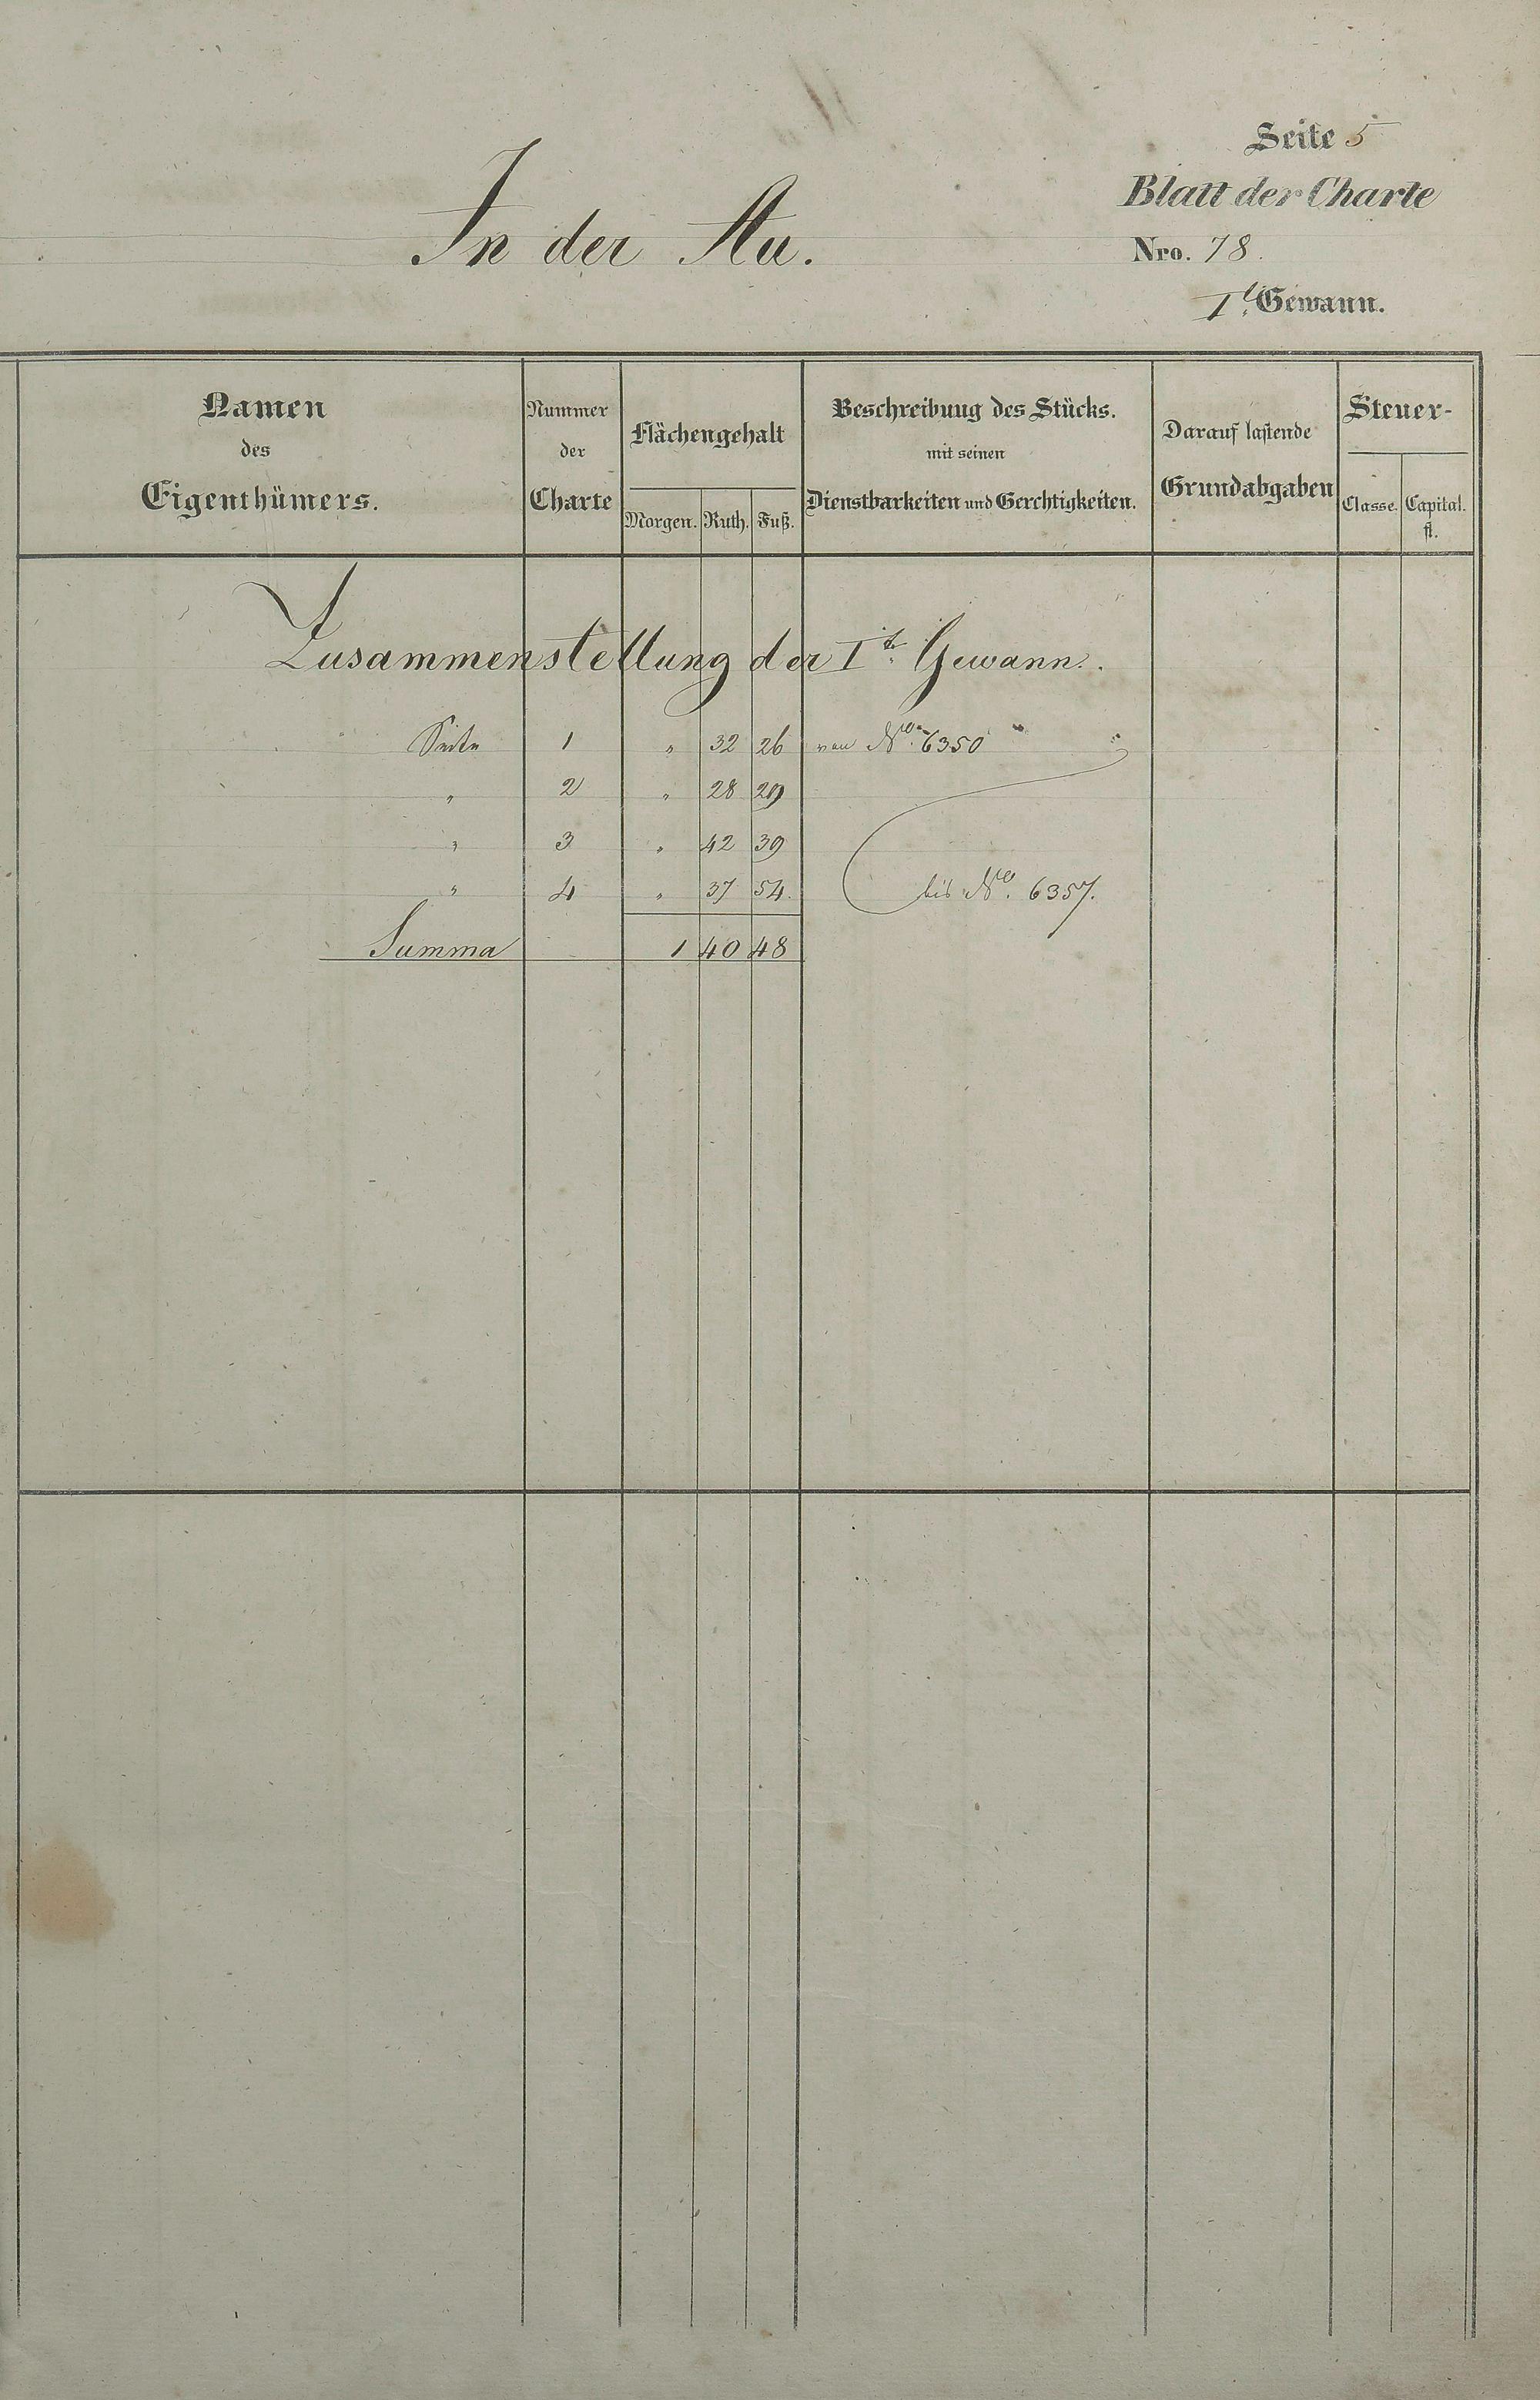 Seite 5
Blatt der Charte
In der Au.
Nro. 78.
I.t Gewann.
Namen des Eigenthümers.
Nummer der Charte
Flächengehalt
Morgen. Ruth. Fuß.
Beschreibung des Stücks.
mit seinen
Dienstbarkeiten und Gerchtigkeiten.
Darauf lastende
Grundabgaben
Steuer-
Classe. Capital.
fl.
Zusammenstellung der I.t Gewann.
Seite 1 " 32 26 von No. 6350
" 2 " 28 29
" 3 " 42 39
" 4 " 37 54. bis No. 6357.
Summa 1 40 48